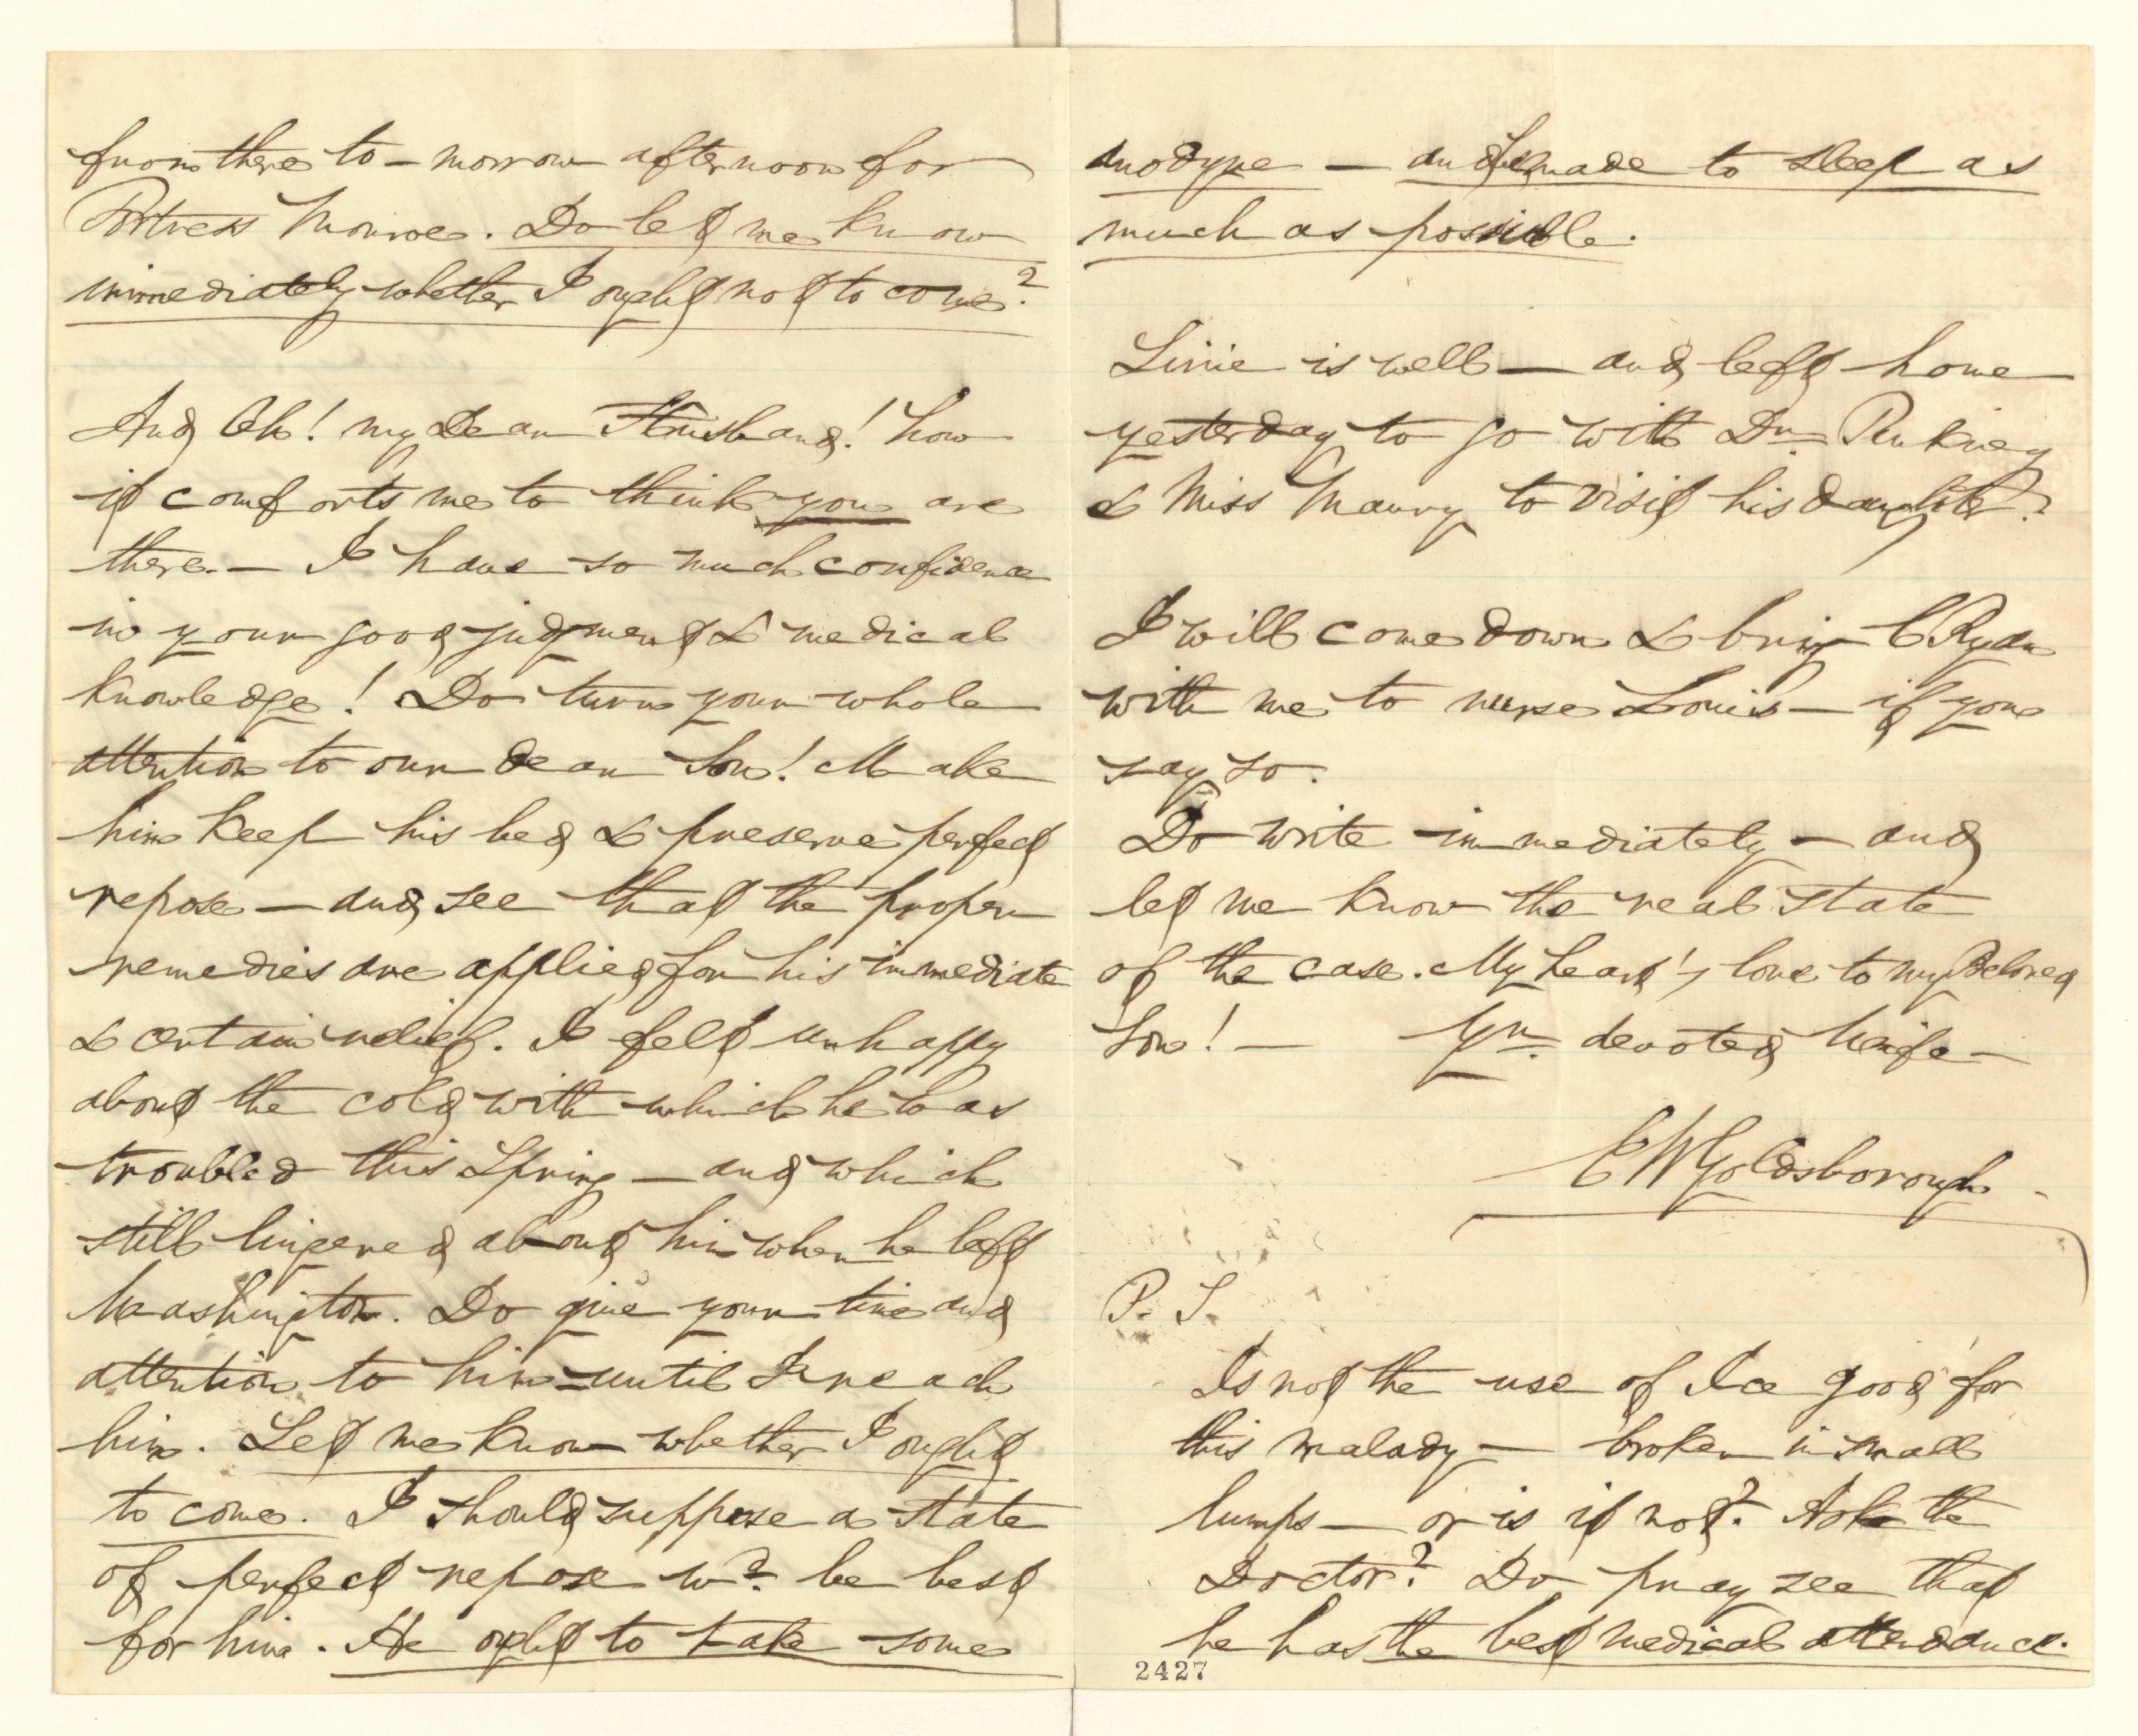 from there to-morrow afternoon for
Fortress Monroe. Do let me know
immediately whether I ought not to come?
And Oh! my dear Husband! how
it comforts me to think you are
there.— I have so much confidence
in your good judgment & medical
knowledge! Do turn your whole
attention to our dear Son! Make
him keep his bed & preserve perfect
repose — and see that the proper
remedies are applied for his immediate
& certain relief. I felt unhappy
about the cold with which he was
troubled this Spring — and which
still lingered about him when he left
Washington. Do give your time and
attention to him—until I reach
him. Let me know whether I ought
to come. I should suppose a state
of perfect repose wd. be best
for him. He ought to take some
anodyne — and be made to sleep as
much as possible.
Linie is well — and left home
yesterday to go with Dr. Pinkney
& Miss Maury to visit his daughter.
I will come down & bring C Ryan
with me to nurse Louis — if you
say so.
Do write immediately — and
let me know the real state
of the case. My heart's love to my Beloved
Son! — Yr. devoted Wife —
E W Goldsborough
P. S.
Is not the use of Ice good for
this malady — broken in small
lumps — or is it not? Ask the
Doctor? Do pray see that
he has the best medical attendance.
2427